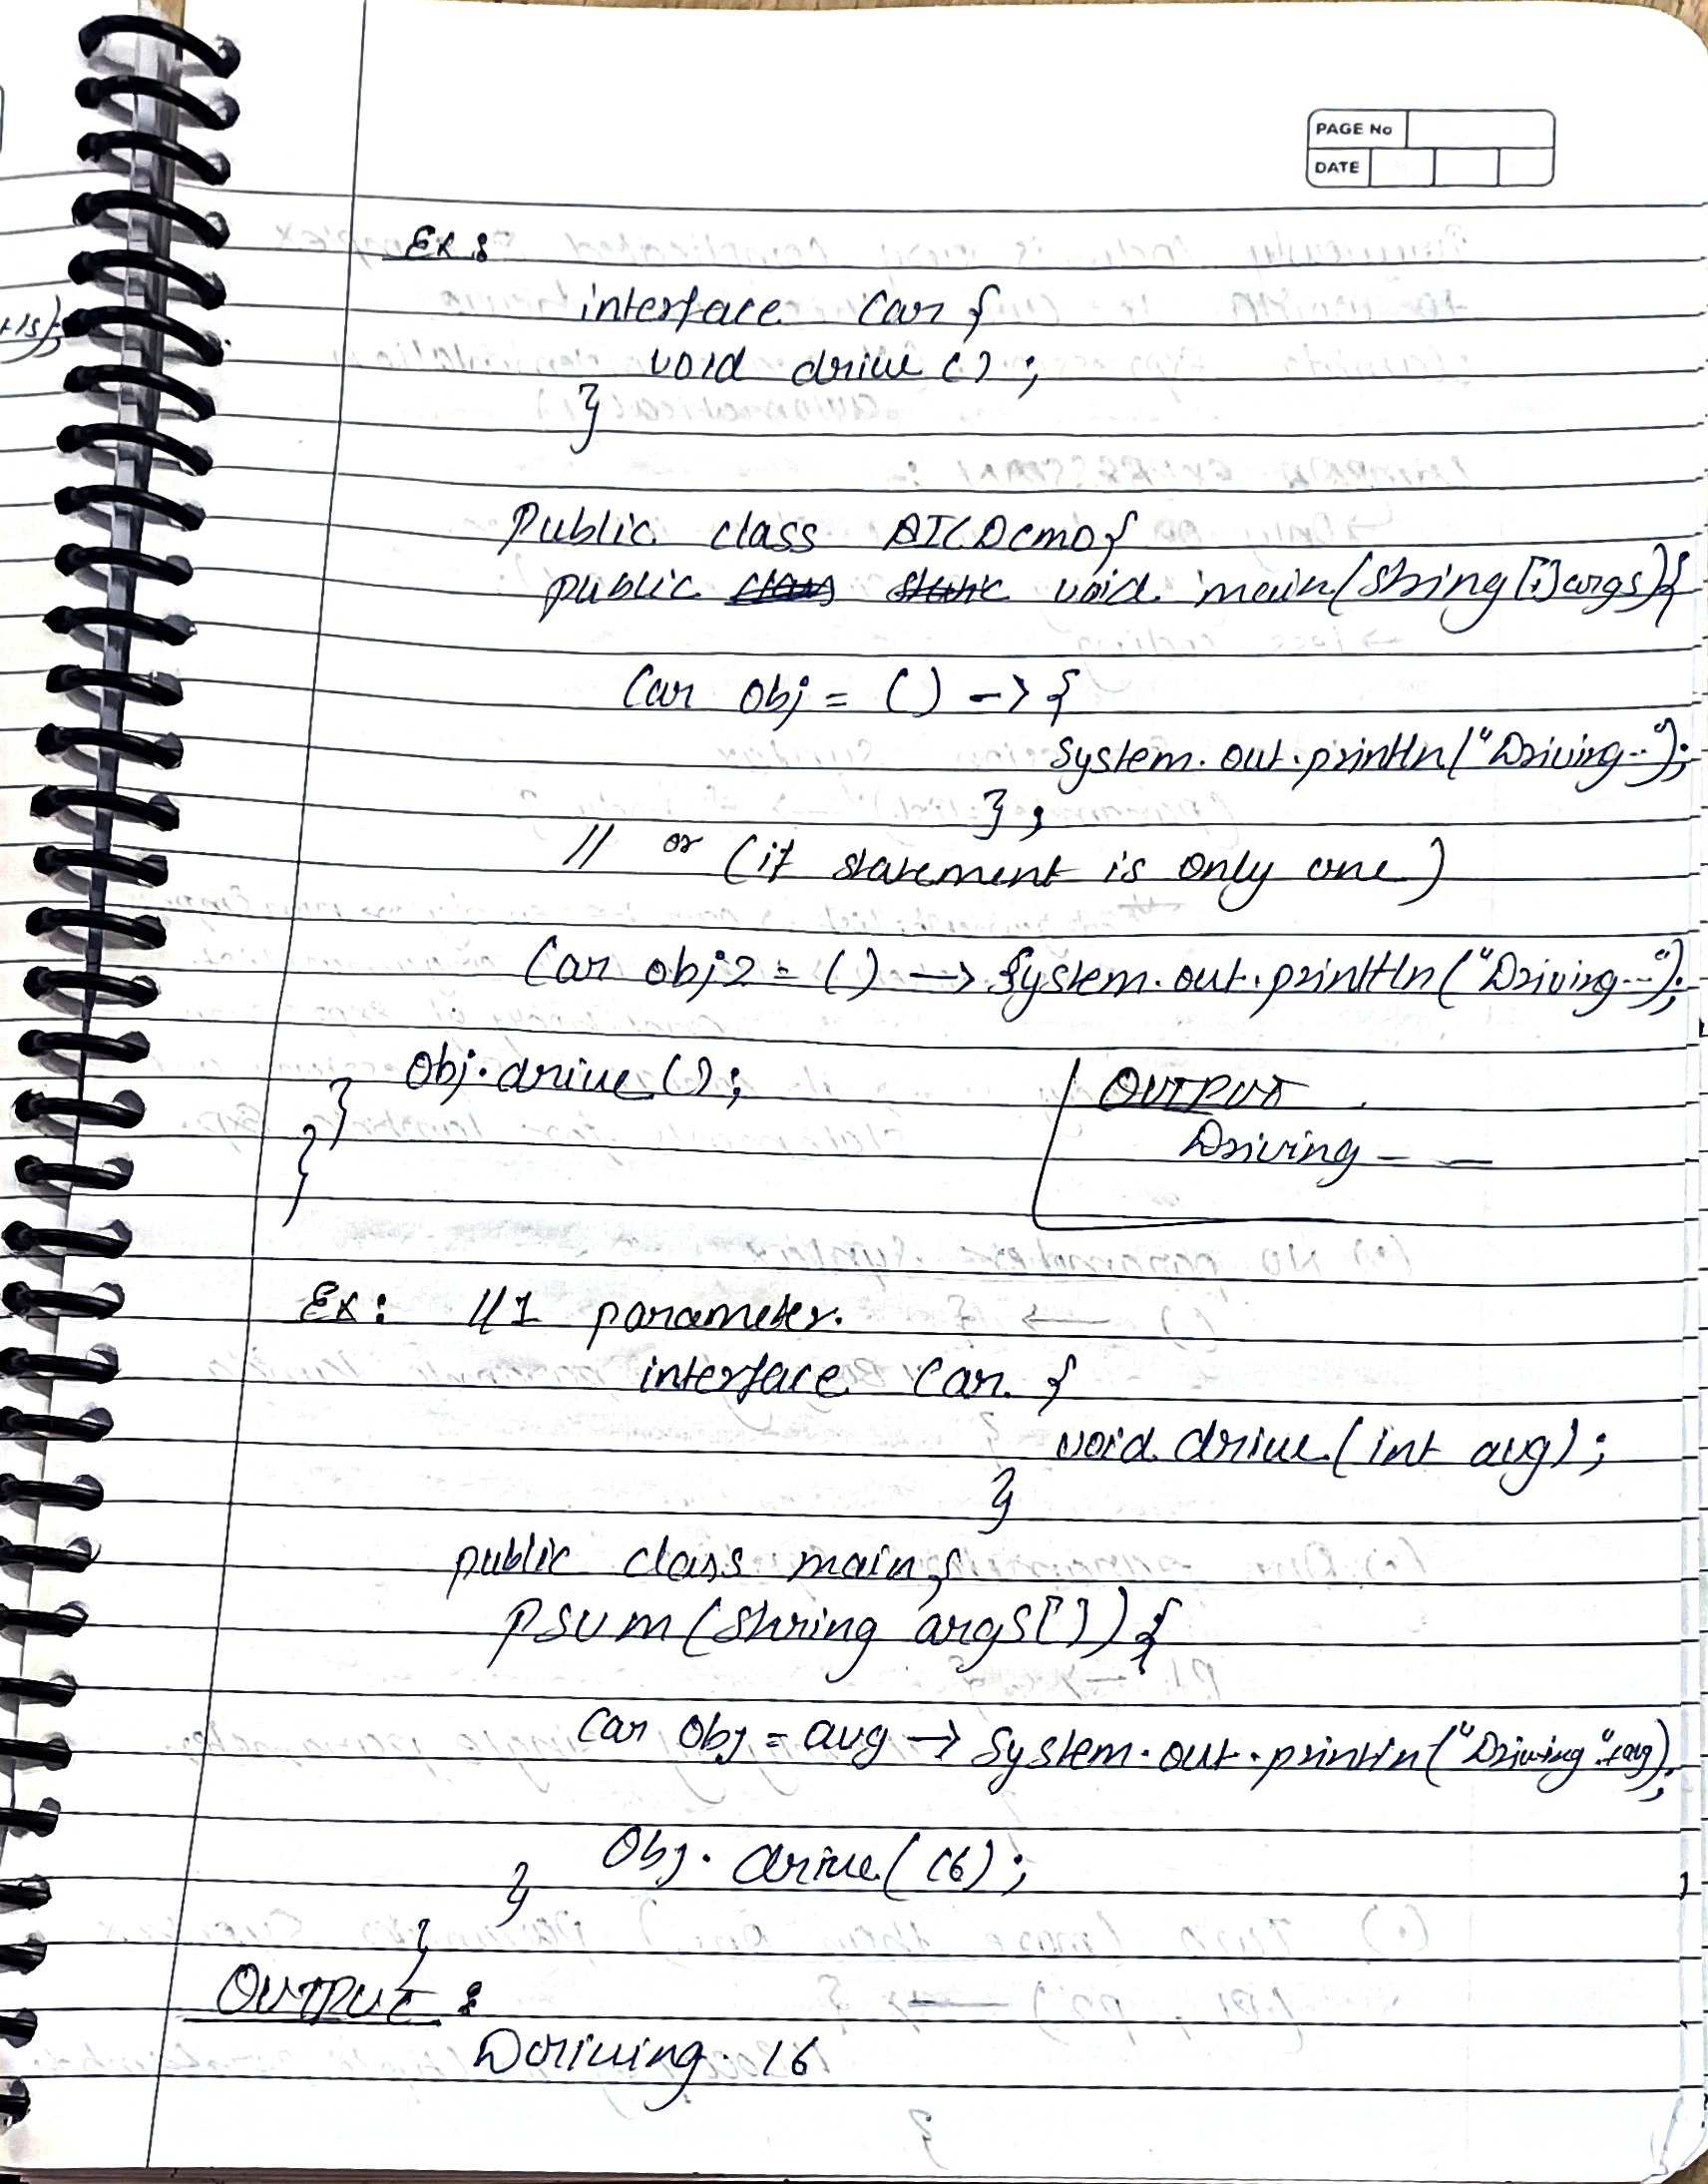 PAGE No
DATE
Ex:
interface Car {
void drive ();
}
Public class AICDemo{
public class static void main(String[]args){
Car obj = () -> {
System.out.println("Driving--");
};
// or (if statement is only one)
Car obj2 = () -> System.out.println("Driving--");
Obj.drive();
}
}
OUTPUT
Driving - -
Ex: //1 parameter.
interface Car {
void drive(int avg);
}
public class main {
PSVM(String args[]) {
Car obj = avg -> System.out.println("Driving "+avg);
Obj.drive(16);
}
}
OUTPUT :
Driving. 16